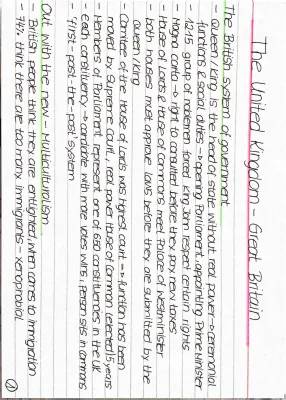 The United Kingdom - Great Britain
The British system of government
- Queen/King is the head of state without real power → ceremonial
functions & social duties → opening Parliament, appointing Prime Minister
- 1215 group of noblemen forced King John respect certain rights
- Magna Carta → right to consulted before they pay new taxes
- House of Lords & House of Commons meet Palace of Westminister
- both houses must approve laws before they are submitted by the
queen/King
- Comitee of the House of Lords was highest court → function has been
moved by Supreme Court, real power House of Common (elected) 5 years
- Members of Parliament represent one of 650 constituencies in the UK
each constituency → candidate with more votes wins, Person sits in Commons
- "first-past-the-post" system
Out with the new - Multiculturalism
British people think they are entlighted, when comes to immigration
- 74% think there are too many immigrants - xenophobial
1